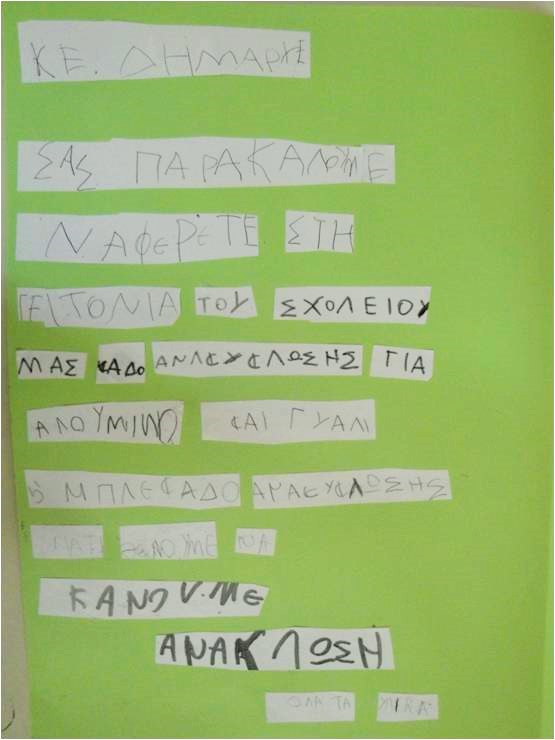 ΚΕ. ΔΗΜΑΡΧΕ
ΣΑΣ ΠΑΡΑΚΑΛΟΥΜΕ
ΝΑ ΦΕΡΕΤΕ ΣΤΗ
ΓΕΙΤΟΝΙΑ ΤΟΥ ΣΧΟΛΕΙΟΥ
ΜΑΣ ΚΑΔΟ ΑΝΑΚΥΚΛΩΣΗΣ ΓΙΑ
ΑΛΟΥΜΙΝΟ ΚΑΙ ΓΥΑΛΙ
ΜΠΛΕ ΚΑΔΟ ΑΝΑΚΥΚΛΩΣΗΣ
ΓΙΑΤΙ ΘΕΛΟΥΜΕ ΝΑ
ΚΑΝΟΥ.ΜΕ
ΑΝΑΚΛΩΣΗ
ΟΛΑ ΤΑ